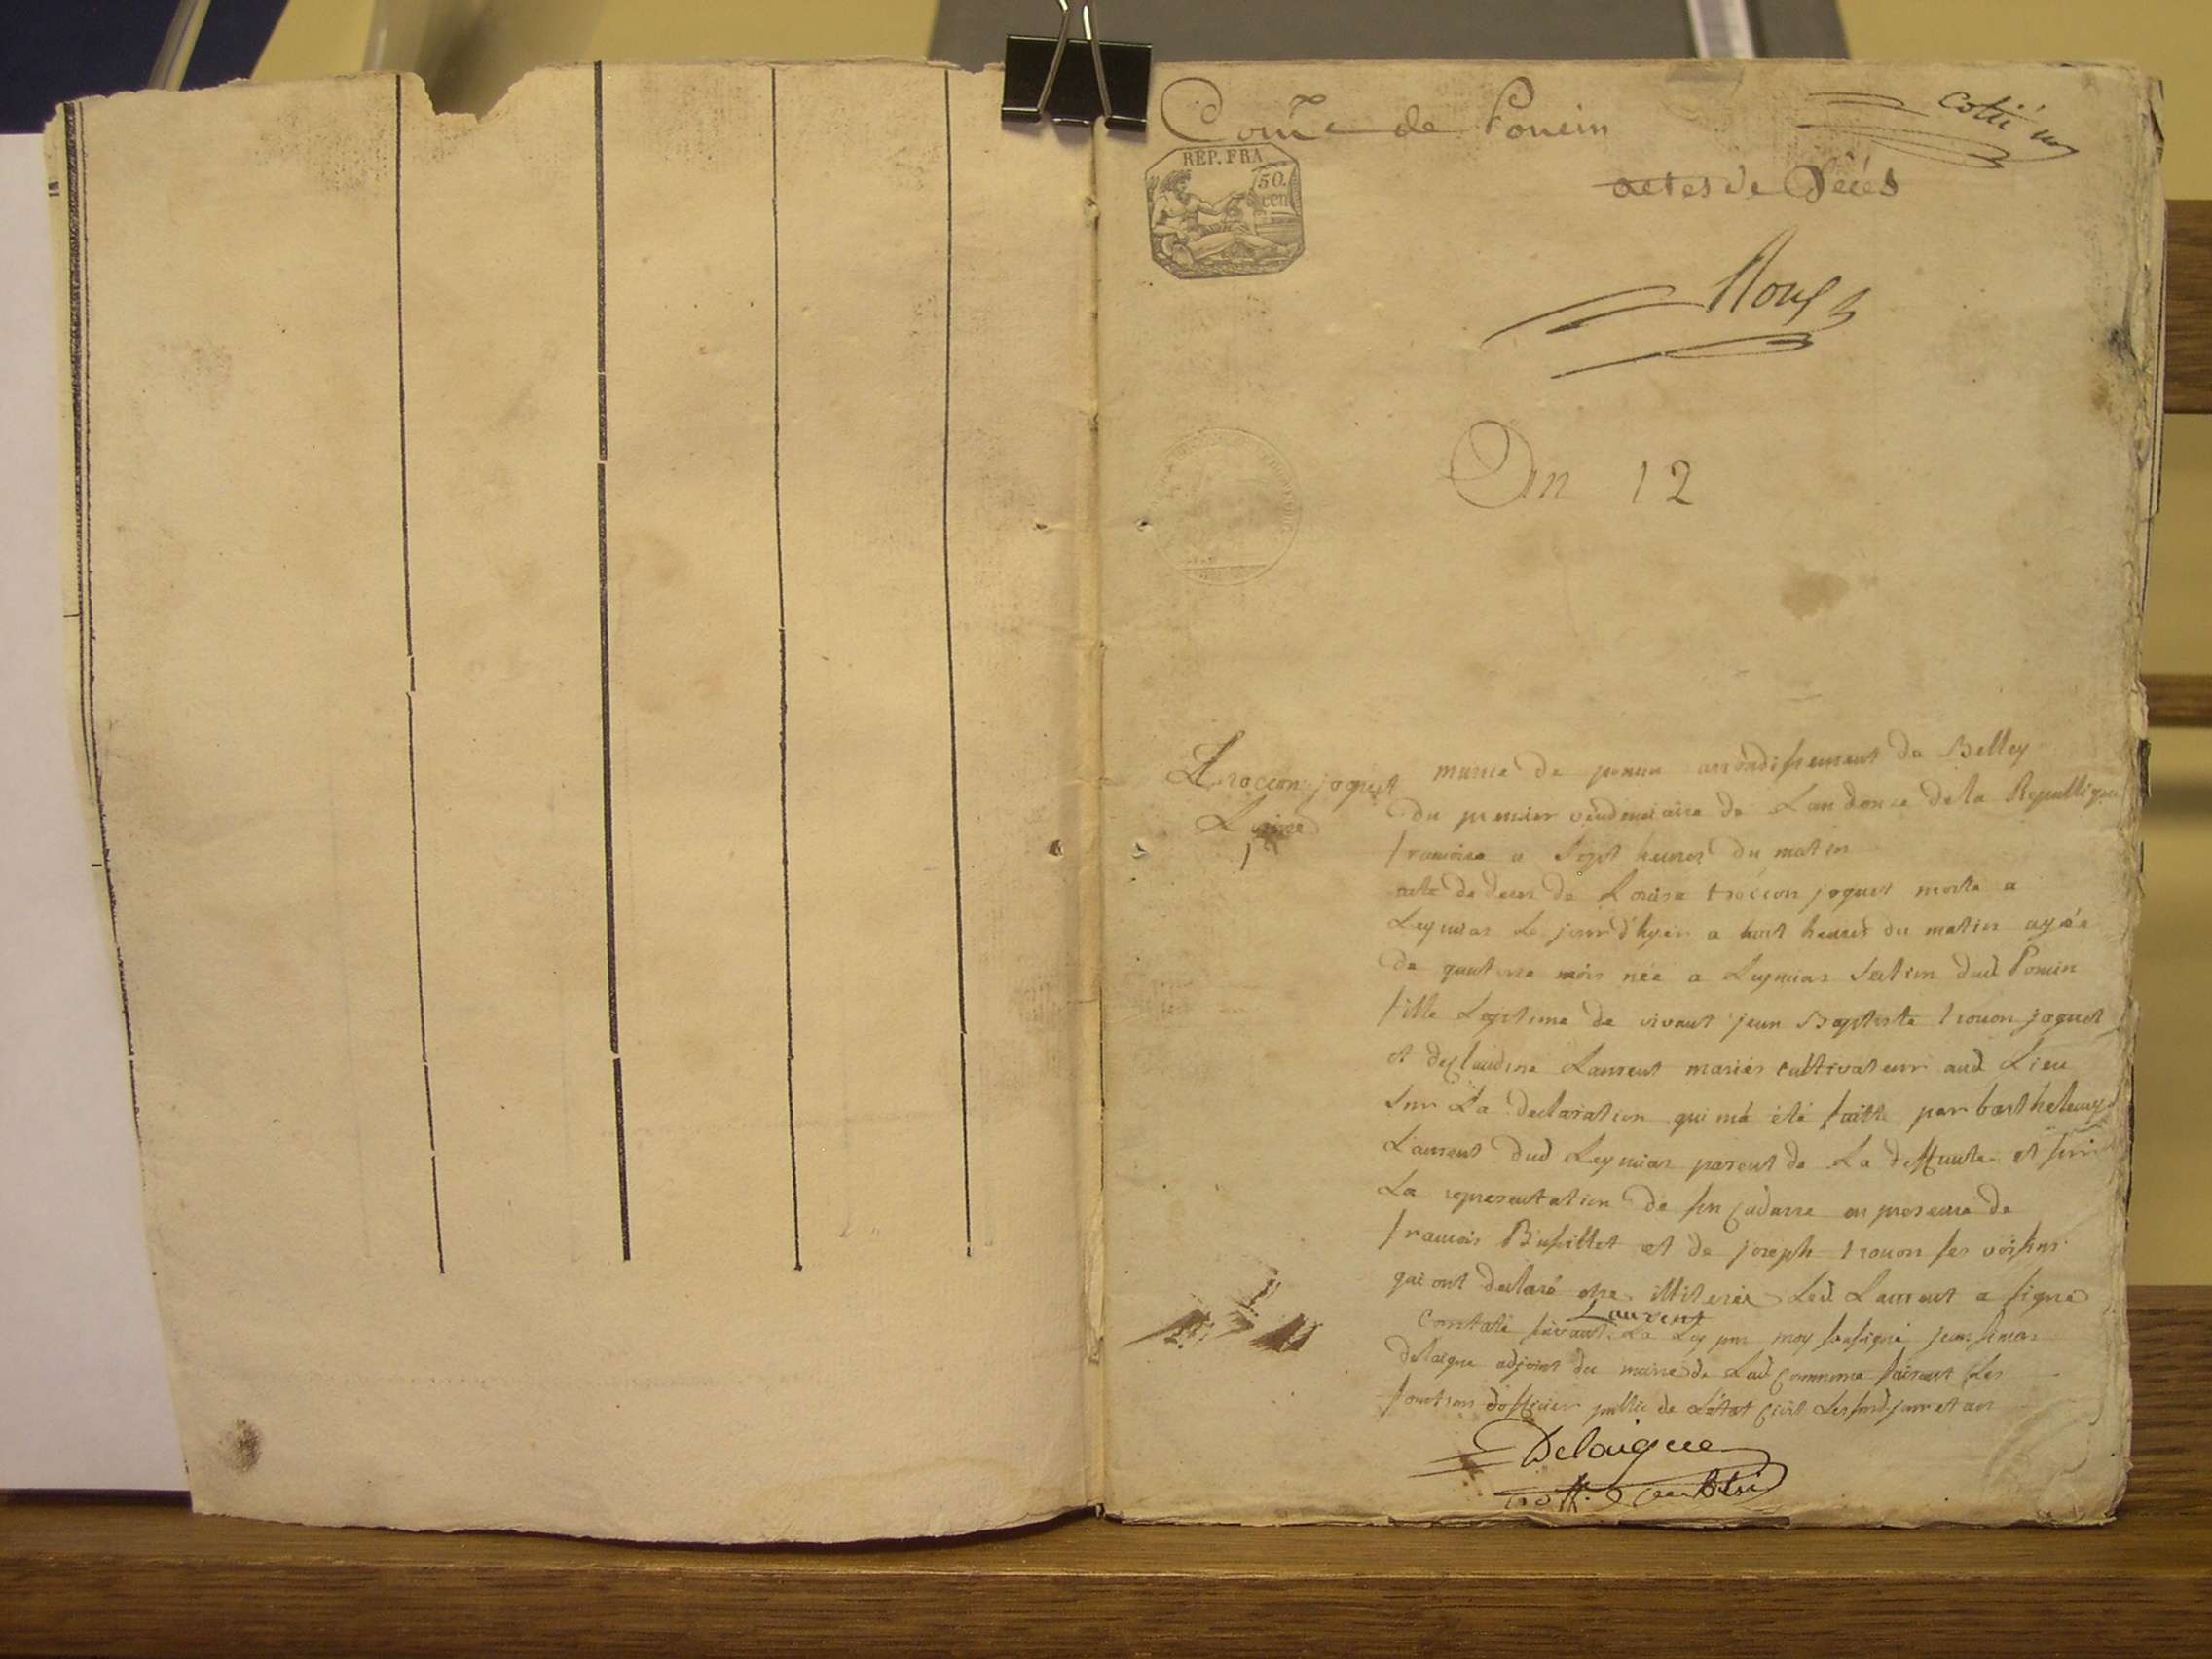 Com̃e de Poncin
cotté
REP. FRA
50.
cen
actes de Décès
An 12
Troccon joguet
Louise
1
mairie de poncin arrondissement de Belley
Du premier vendemiaire de Lan douze de la Republique
francoise a Sept heures du matin
acte de deces de Louise troccon joguet morte a
Leymiat Le jour d'hyer a huit heures du matin agée
de quatorze mois née a Leymiat Section dud Poncin
fille Legitime de vivant jean Baptiste trocon joguet
et de Claudine Laurent mariés cultivateurs aud Lieu
Sur La declaration qui m'a été faitte par barthelemy
Laurent dud Leymiat parent de La deffunte et sur
La representation de son Cadavre en presence de
francois Bussillet et de joseph trocon ses voisins
qui ont declaré etre illiterés Led Laurent a signé
Laurent
Constaté suivant La Loy par moy soussigné jean simon
delaigue adjoint du maire de Lad Commune faisant Les
fonctions dofficier public de L'état Civil Les susd jour et an
Delaigue